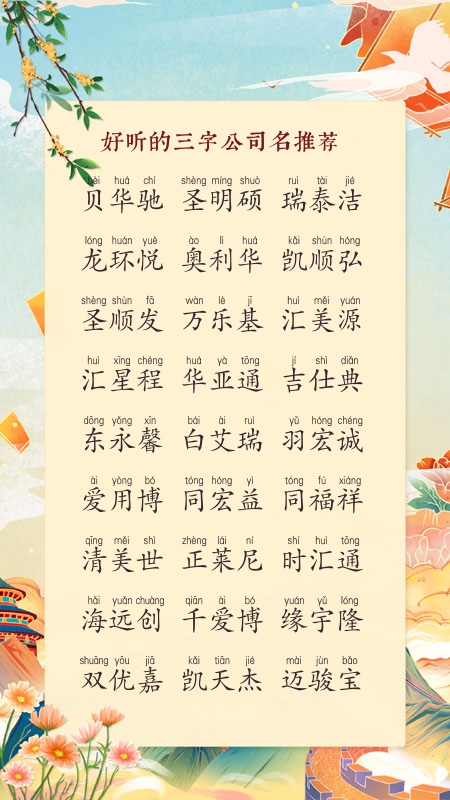 好听的三字公司名推荐
bèi huá chí shèng míng shuò ruì tài jié
贝华驰 圣明硕 瑞泰洁
lóng huán yuè ào lì huá kǎi shùn hóng
龙环悦 奥利华 凯顺弘
shèng shùn fā wàn lè jī huì měi yuán
圣顺发 万乐基 汇美源
huì xīng chéng huá yà tōng jí shì diǎn
汇星程 华亚通 吉仕典
dōng yǒng xīn bái ài ruì yǔ hóng chéng
东永馨 白艾瑞 羽宏诚
ài yòng bó tóng hóng yì tóng fú xiáng
爱用博 同宏益 同福祥
qīng měi shì zhèng lái ní shí huì tōng
清美世 正莱尼 时汇通
hǎi yuǎn chuàng qiān ài bó yuán yǔ lóng
海远创 千爱博 缘宇隆
shuāng yōu jiā kǎi tiān jié mài jùn bǎo
双优嘉 凯天杰 迈骏宝